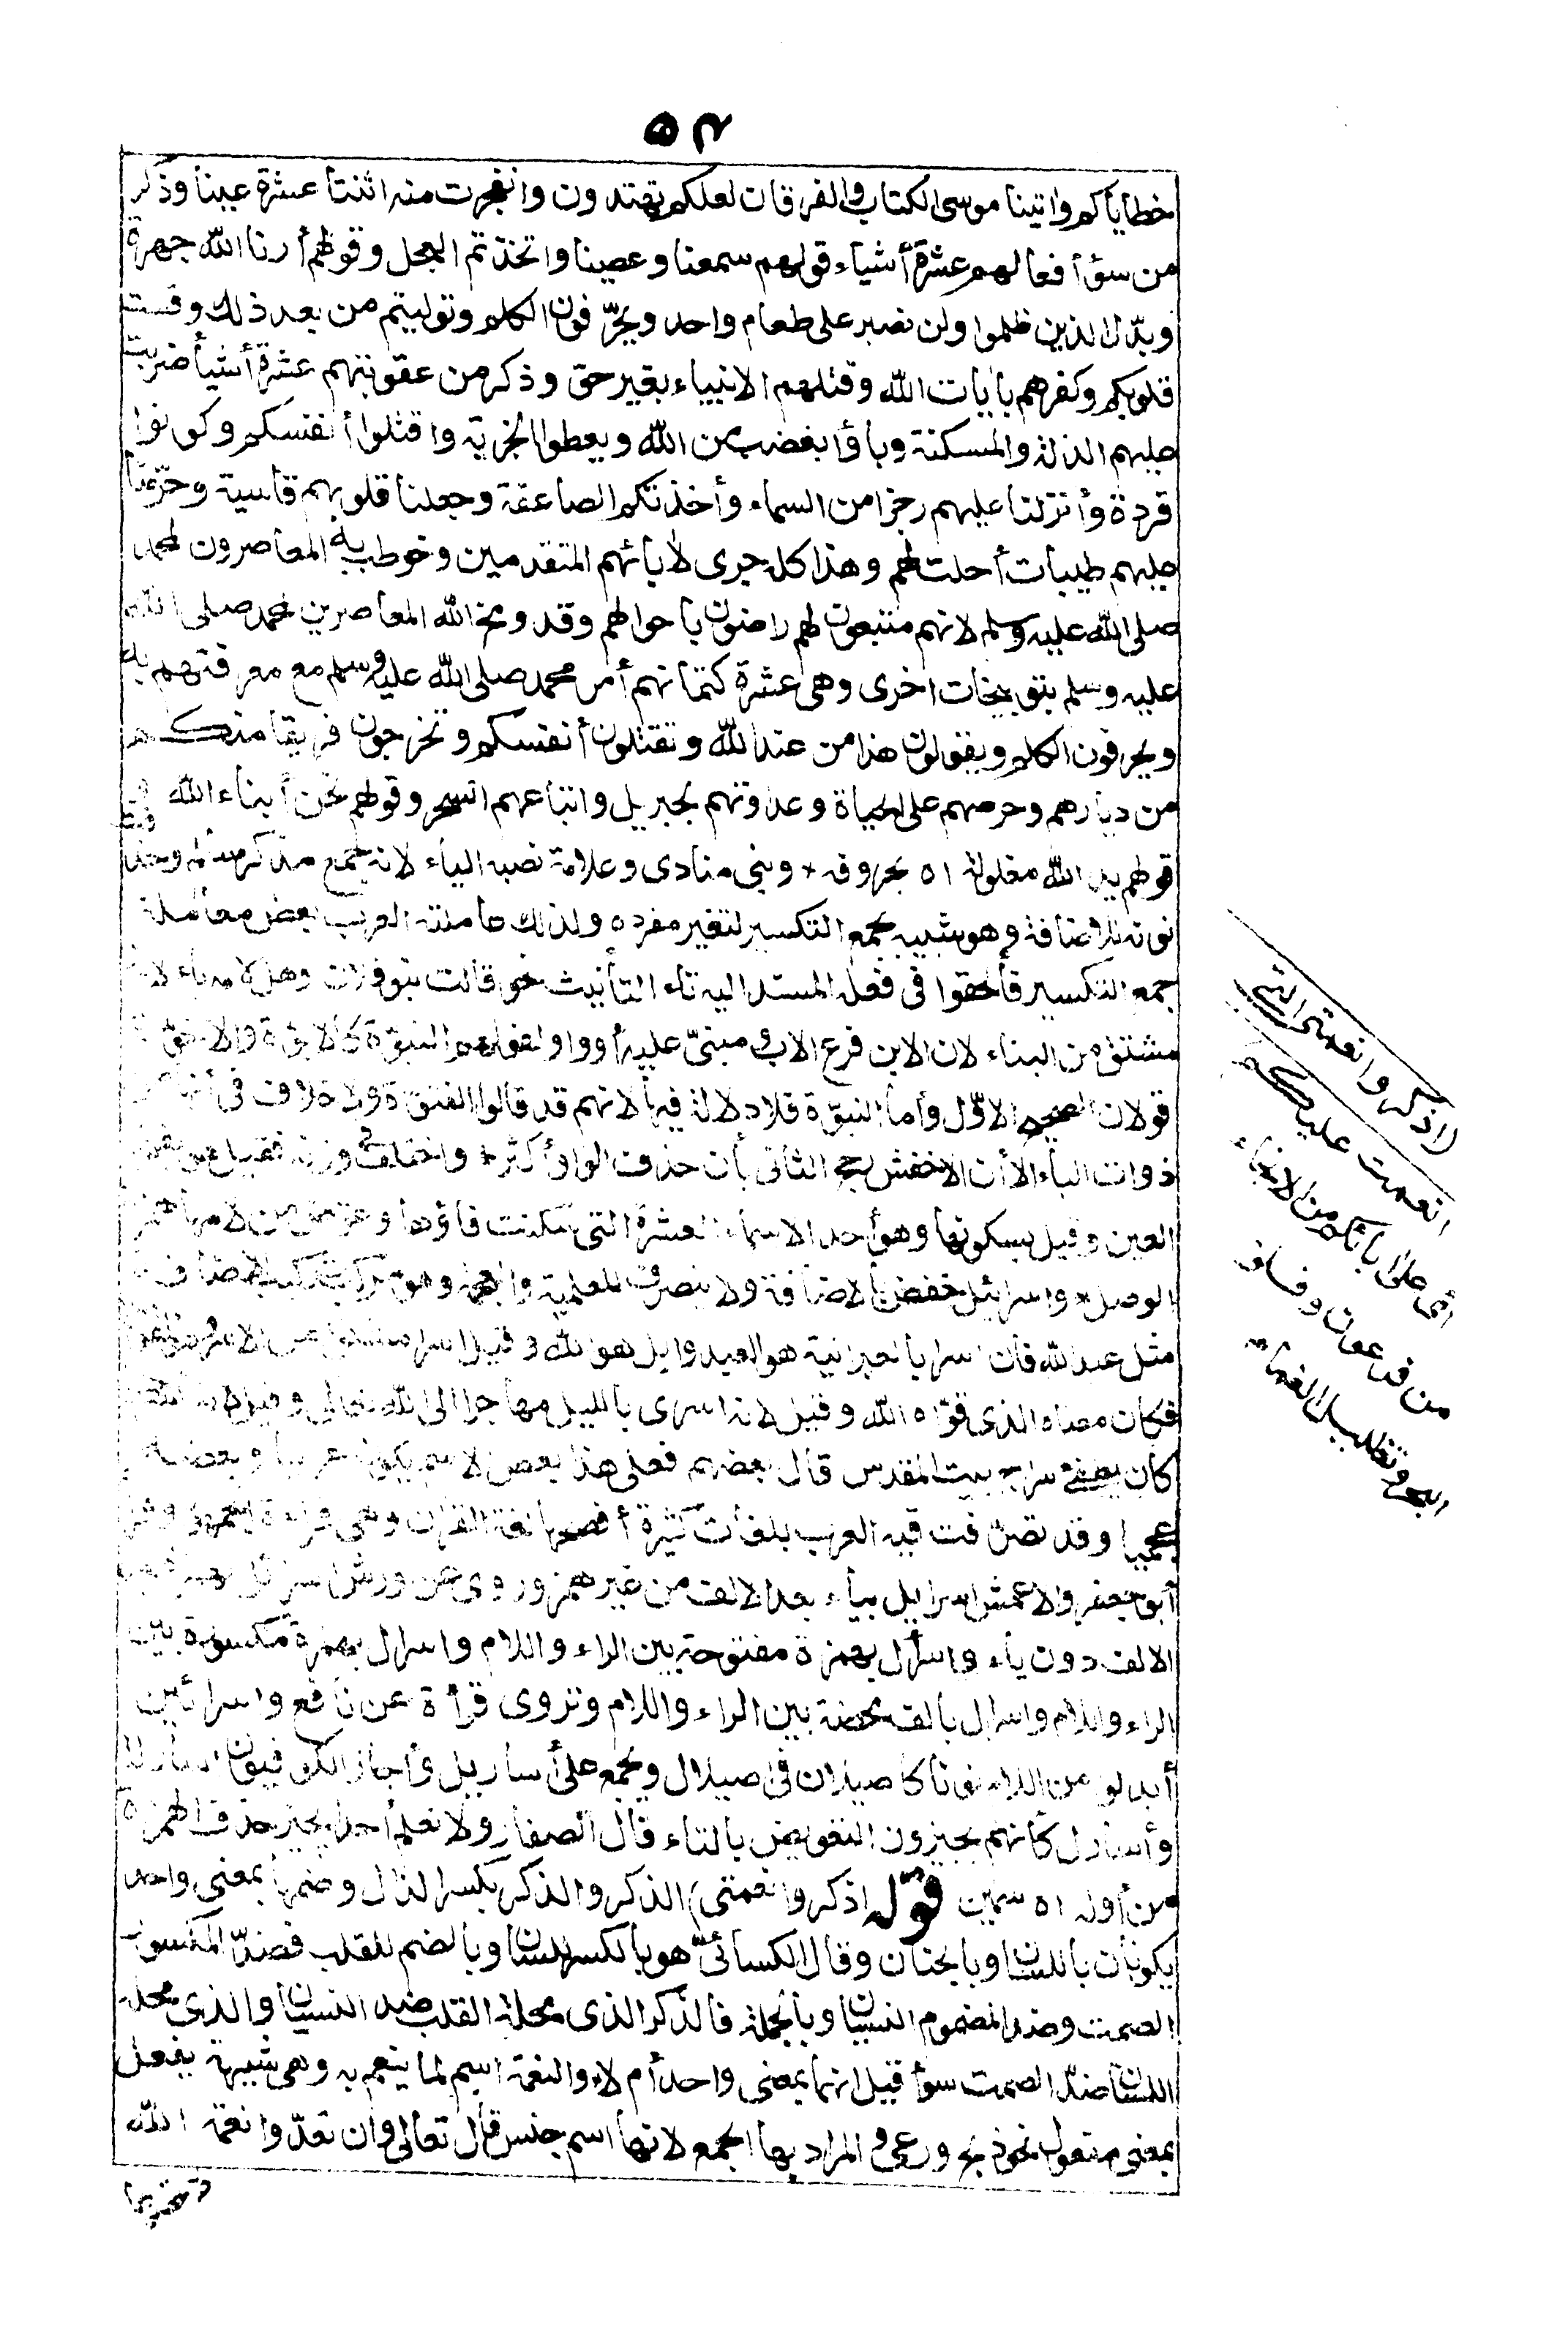 ٥٢
خطاياكم واتينا موسى الكتاب والفرقان لعلكم تهتدون وانفجرت منه اثنتا عشرة عينا وذكر
من سوأ فعالهم عشرة أشياء قولهم سمعنا وعصينا واتخذتم العجل وقولهم أرنا الله جهرة
وبدّل الذين ظلموا ولن نصبر على طعام واحد ويحرّفون الكلم وتوليتم من بعد ذلك وقست
قلوبكم وكفرهم بأيات الله وقتلهم الانبياء بغير حق وذكر من عقوبتهم عشرة أشيأ ضربت
عليهم الذلة والمسكنة وباؤا بغضب من الله ويعطوا الجزية واقتلوا أنفسكم وكونوا
قردة وأنزلنا عليهم رجزا من السماء وأخذتكم الصاعقة وجعلنا قلوبهم قاسية وحرّمنا
عليهم طيبات أحلت لهم وهذا كله جرى لأبائهم المتقدمين وخوطب به المعاصرون لمحمد
صلى الله عليه وسلم لانهم متبعون لهم راضون باحوالهم وقد وبخ الله المعاصرين لمحمد صلى الله
عليه وسلم بتوبيخات اخرى وهى عشرة كتمانهم أمر محمد صلى الله عليه وسلم مع معرفتهم به
ويحرفون الكلم ويقولون هذا من عند الله وتقتلون أنفسكم وتخرجون فريقا منكم
من ديارهم وحرصهم على الحياة وعداوتهم لجبريل واتباعهم السحر وقولهم نحن أبناء الله
قولهم يد الله مغلولة اه بحروفه + وبنى منادى وعلامة نصبه الياء لانه جمع مذكر سالم وحذفت
نونه للاضافة وهو شبيه بجمع التكسير لتغير مفرده ولذلك عاملته العرب بعض معاملة
جمع التكسير فألحقوا فى فعله المسند اليه تاء التأنيث نحو قالت بنو فلان وهل لامه ياء لانه
مشتق من البناء لان الابن فرع الاب ومبنىّ عليه أو واو لقولهم البنوّة كالابوّة والاخوّة
قولان الصحيح الاوّل وأما البنوّة فلا دلالة فيها لانهم قد قالوا الفتوّة ولا خلاف فى أنها من
ذوات الياء الا أن الاخفش رجح الثانى بأن حذف الواو أكثر واختلف فى وزنه فقيل هو بفتح
العين وقيل بسكونها وهو أحد الاسماء العشرة التى سكنت فاؤها وعوض من لامها همزة
الوصل واسرائيل خفض بالاضافة ولا ينصرف للعلمية والعجمة وهو مركب تركيب الاضافة
مثل عبد الله فان اسرا بالعبرانية هو العبد وايل هو الله وقيل اسرا مشتق من الاسر وهو القوة
فكان معناه الذى قوّاه الله وقيل لانه اسرى بالليل مهاجرا الى الله تعالى وقيل لانه
كان يطفئ سراج بيت المقدس قال بعضهم فعلى هذا بعض الاسم يكون عربيا وبعضه
عجميا وقد تصرّفت فيه العرب بلغات كثيرة أفصحها لغة القرآن وهى قراءة الجمهور وقرأ
أبو جعفر والاعمش اسراييل بياء بعد الالف من غير همز وروى عن ورش اسرائل بهمزة بعد
الالف دون ياء واسرأل بهمزة مفتوحة بين الراء واللام واسرئل بهمزة مكسورة بين
الراء واللام واسرال بالف محضة بين الراء واللام وتروى قرأة عن نافع واسرائين
أبدلوا من اللام نونا كاصيلان فى اصيلال ويجمع على أساريل وأجاز الكوفيون أسارلة
وأسارل كأنهم يجيزون التعويض بالتاء قال الصفار ولا نعلم أحدا يجيز حذف الهمزة
من أوله اه سمين قوله اذكروا نعمتى) الذكر والذكر بكسر الذال وضمها بمعنى واحد
يكونان باللسان وبالجنان وقال الكسائىّ هو بالكسر للسان وبالضم للقلب فضدّ المكسور
الصمت وضد المضموم النسيان وبالجملة فالذكر الذى محله القلب ضد النسيان والذى محله
اللسان ضدّ الصمت سوأ قيل انهما بمعنى واحد أم لا والنعمة اسم لما ينعم به وهى شبيهة بفعل
بمعنى مفعول نحو ذبح ورعى والمراد بها الجمع لانها اسم جنس قال تعالى وان تعدّوا نعمة الله
لا تحصوها
(اذكروا نعمتى التى
انعمت عليكم)
أى على آبائكم من الانجاء
من فرعون وفلق
البحر وتظليل الغمام